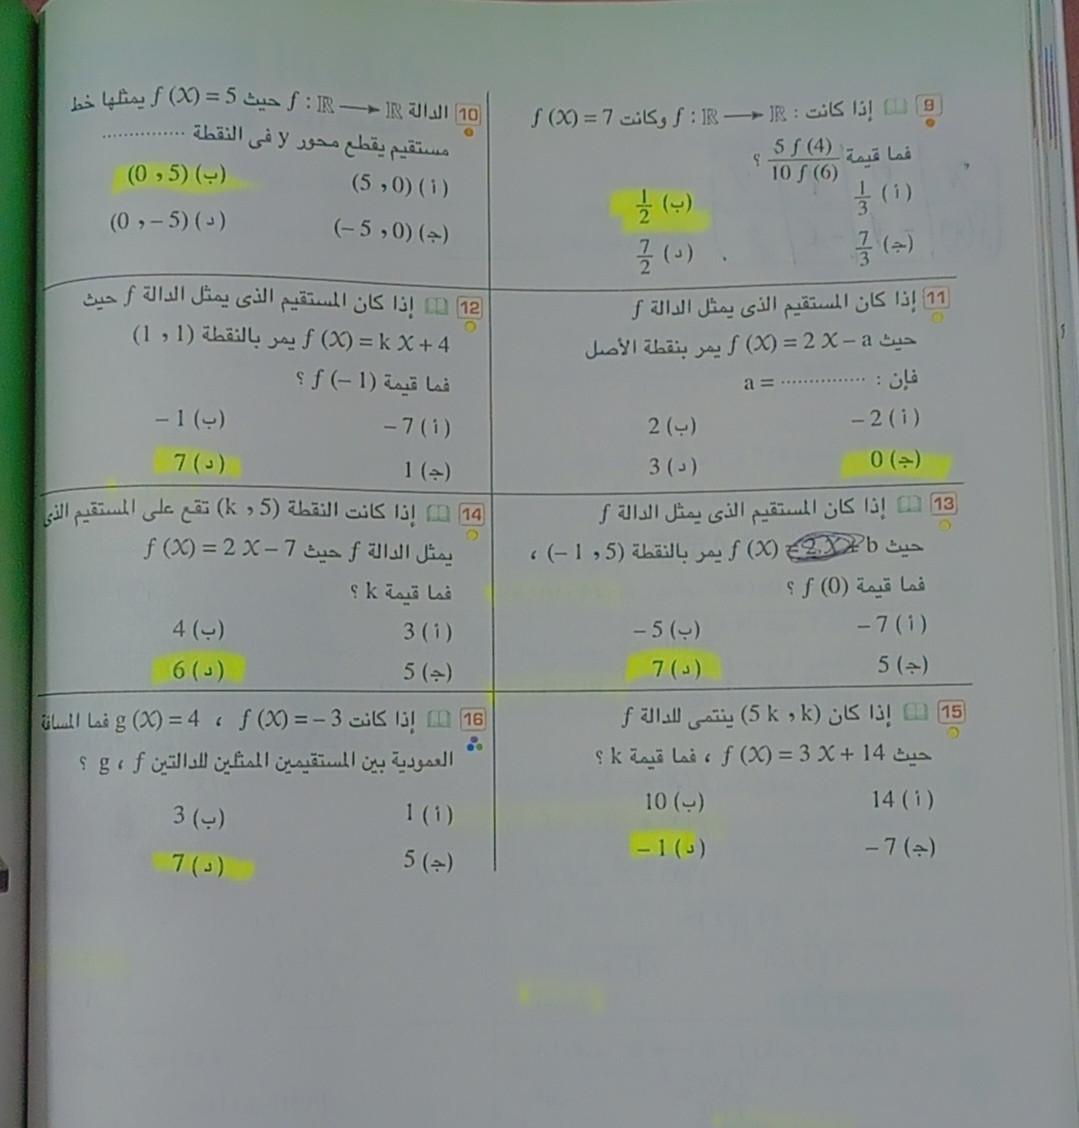 9 إذا كانت : f : ℝ ⟶ ℝ وكانت f (X) = 7
فما قيمة 5 f (4) / 10 f (6) ؟
(أ) 1/3 (ب) 1/2
(ج) 7/3 (د) 7/2
10 الدالة f : ℝ ⟶ ℝ حيث f (X) = 5 يمثلها خط
مستقيم يقطع محور y فى النقطة ...............
(أ) (5 ، 0) (ب) (0 ، 5)
(ج) (– 5 ، 0) (د) (0 ، – 5)
11 إذا كان المستقيم الذى يمثل الدالة f
حيث f (X) = 2 X – a يمر بنقطة الأصل
فإن : a = ...............
(أ) – 2 (ب) 2
(ج) 0 (د) 3
12 إذا كان المستقيم الذى يمثل الدالة f حيث
f (X) = k X + 4 يمر بالنقطة (1 ، 1)
فما قيمة f (– 1) ؟
(أ) – 7 (ب) – 1
(ج) 1 (د) 7
13 إذا كان المستقيم الذى يمثل الدالة f
حيث f (X) = 2 X + b يمر بالنقطة (– 1 ، 5) ،
فما قيمة f (0) ؟
(أ) – 7 (ب) – 5
(ج) 5 (د) 7
14 إذا كانت النقطة (k ، 5) تقع على المستقيم الذى
يمثل الدالة f حيث f (X) = 2 X – 7
فما قيمة k ؟
(أ) 3 (ب) 4
(ج) 5 (د) 6
15 إذا كان (5 k ، k) ينتمى للدالة f
حيث f (X) = 3 X + 14 ، فما قيمة k ؟
(أ) 14 (ب) 10
(ج) – 7 (د) – 1
16 إذا كانت f (X) = – 3 ، g (X) = 4 فما المسافة
العمودية بين المستقيمين الممثلين للدالتين f ، g ؟
(أ) 1 (ب) 3
(ج) 5 (د) 7